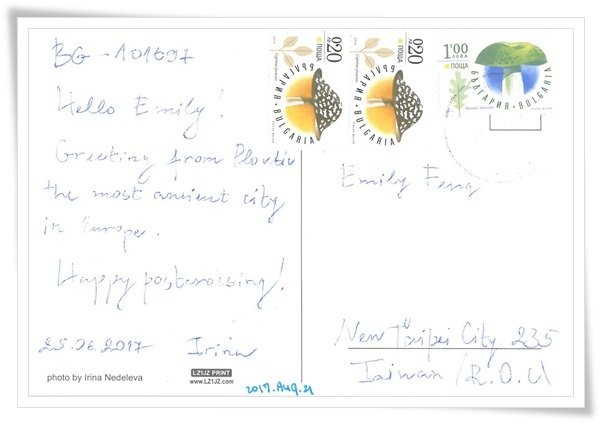 BG-101697
Hello Emily!
Greeting from Plovdiv
the most ancient city
in Europe.
Happy postcrossing!
25.06.2017 Irina
photo by Irina Nedeleva
LZ1JZ PRINT
www.LZ1JZ.com
2017.Aug.21
0.20
ЛВ
ПОЩА
БЪЛГАРИЯ • BULGARIA
0.20
ЛВ
ПОЩА
БЪЛГАРИЯ • BULGARIA
1.00
ЛЕВА
ПОЩА
БЪЛГАРИЯ • BULGARIA
Emily Feng
New Taipei City 235
Taiwan / R.O.C